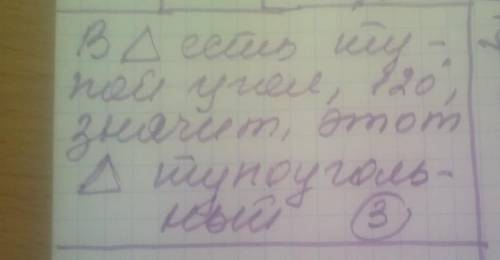 В △ есть ту-
пой угол, 120°,
значит, этот
△ тупоуголь-
ный 3